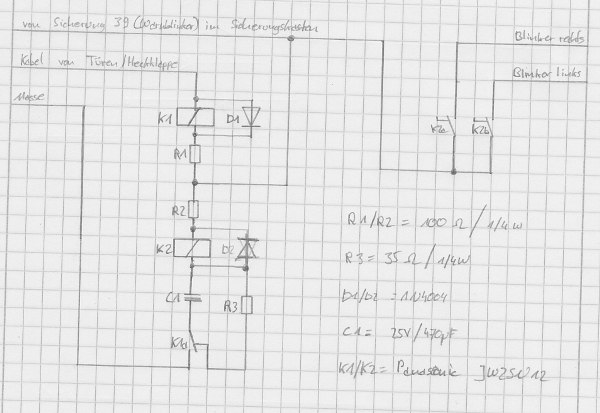 von Sicherung 39 (Warnblinker) im Sicherungskasten
Blinker rechts
Kabel von Türen/Heckklappe
Blinker links
Masse
K1
D1
K2a
K2b
R1
R2
R1/R2 = 100 Ω / 1/4W
K2
D2
R3 = 35 Ω / 1/4W
C1
R3
D1/D2 = 1N4004
C1 = 25V/470µF
K1a
K1/K2 = Panasonic JW2SN12